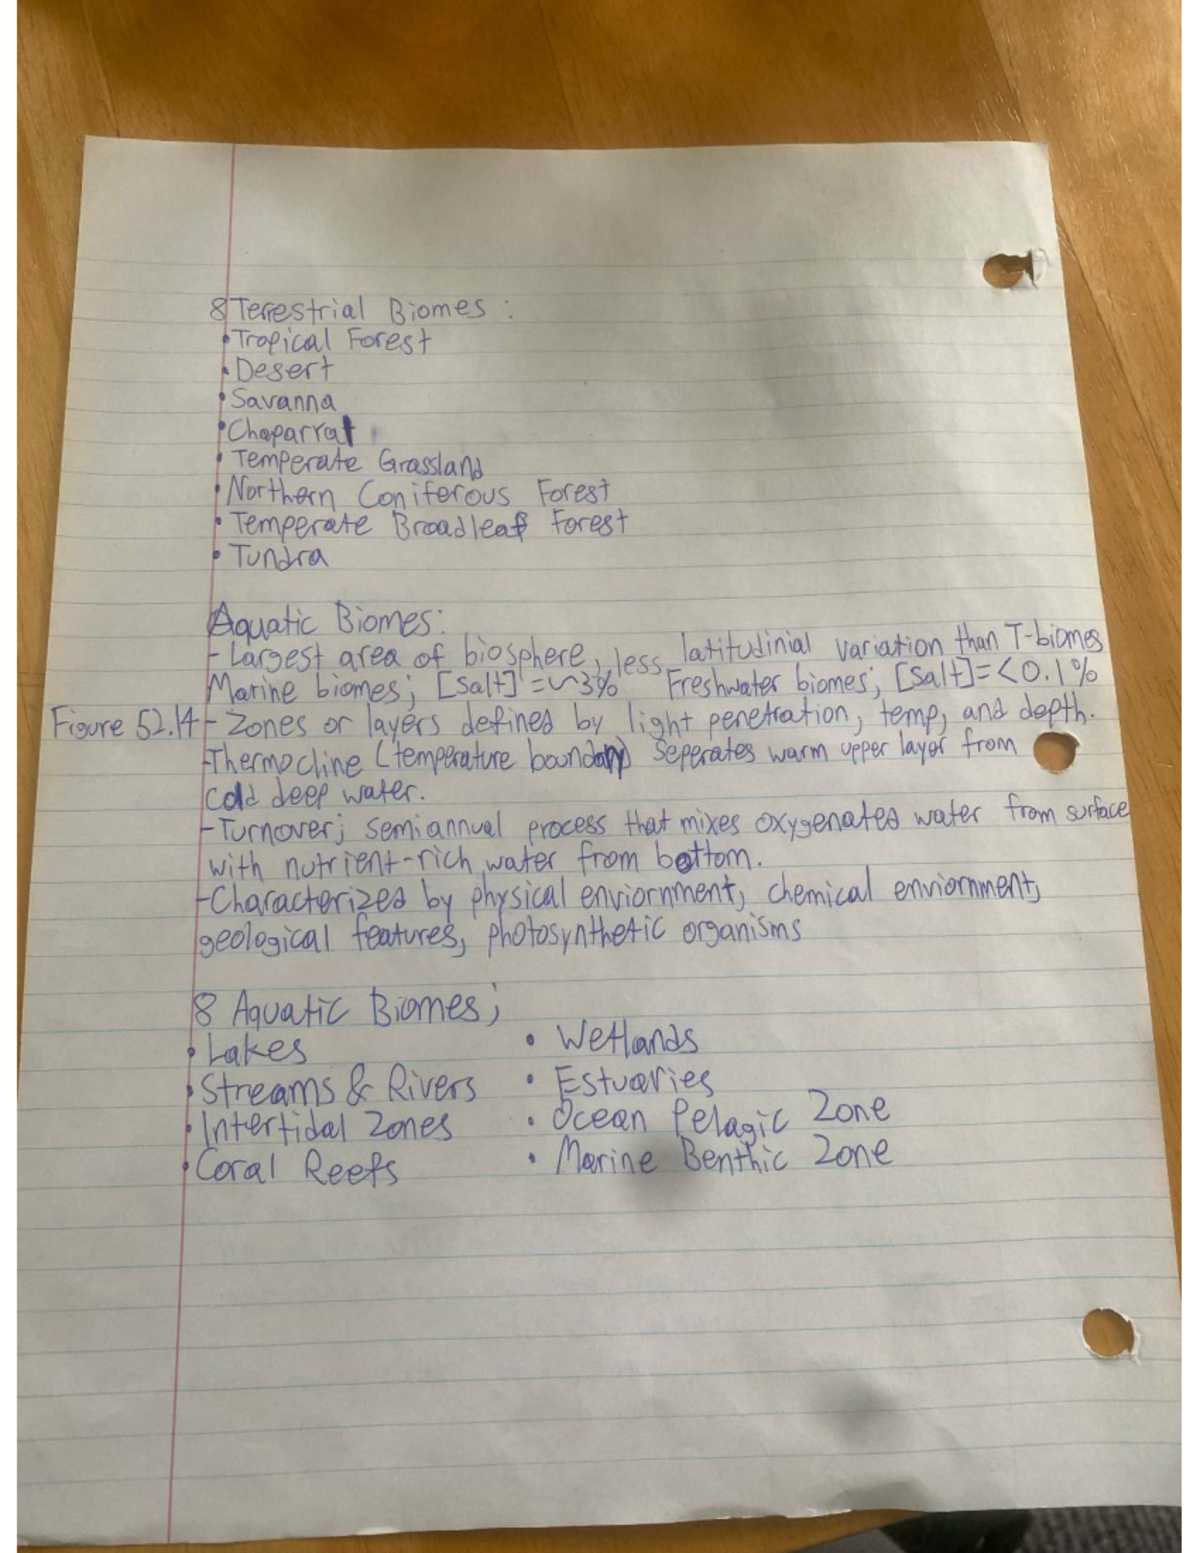 8 Terrestrial Biomes :
• Tropical Forest
• Desert
• Savanna
• Chaparral
• Temperate Grassland
• Northern Coniferous Forest
• Temperate Broadleaf Forest
• Tundra
Aquatic Biomes:
- Largest area of biosphere, less latitudinial variation than T-biomes
Marine biomes; [Salt] = ~3% Freshwater biomes; [Salt]=<0.1%
Figure 52.14 - Zones or layers defined by light penetration, temp, and depth.
-Thermocline (temperature boundary) Seperates warm upper layer from
cold deep water.
-Turnover; semiannual process that mixes oxygenated water from surface
with nutrient-rich water from bottom.
-Characterized by physical enviornment, chemical enviornment,
geological features, photosynthetic organisms
8 Aquatic Biomes;
• Lakes • Wetlands
• Streams & Rivers • Estuaries
• Intertidal Zones • Ocean Pelagic Zone
• Coral Reefs • Marine Benthic Zone